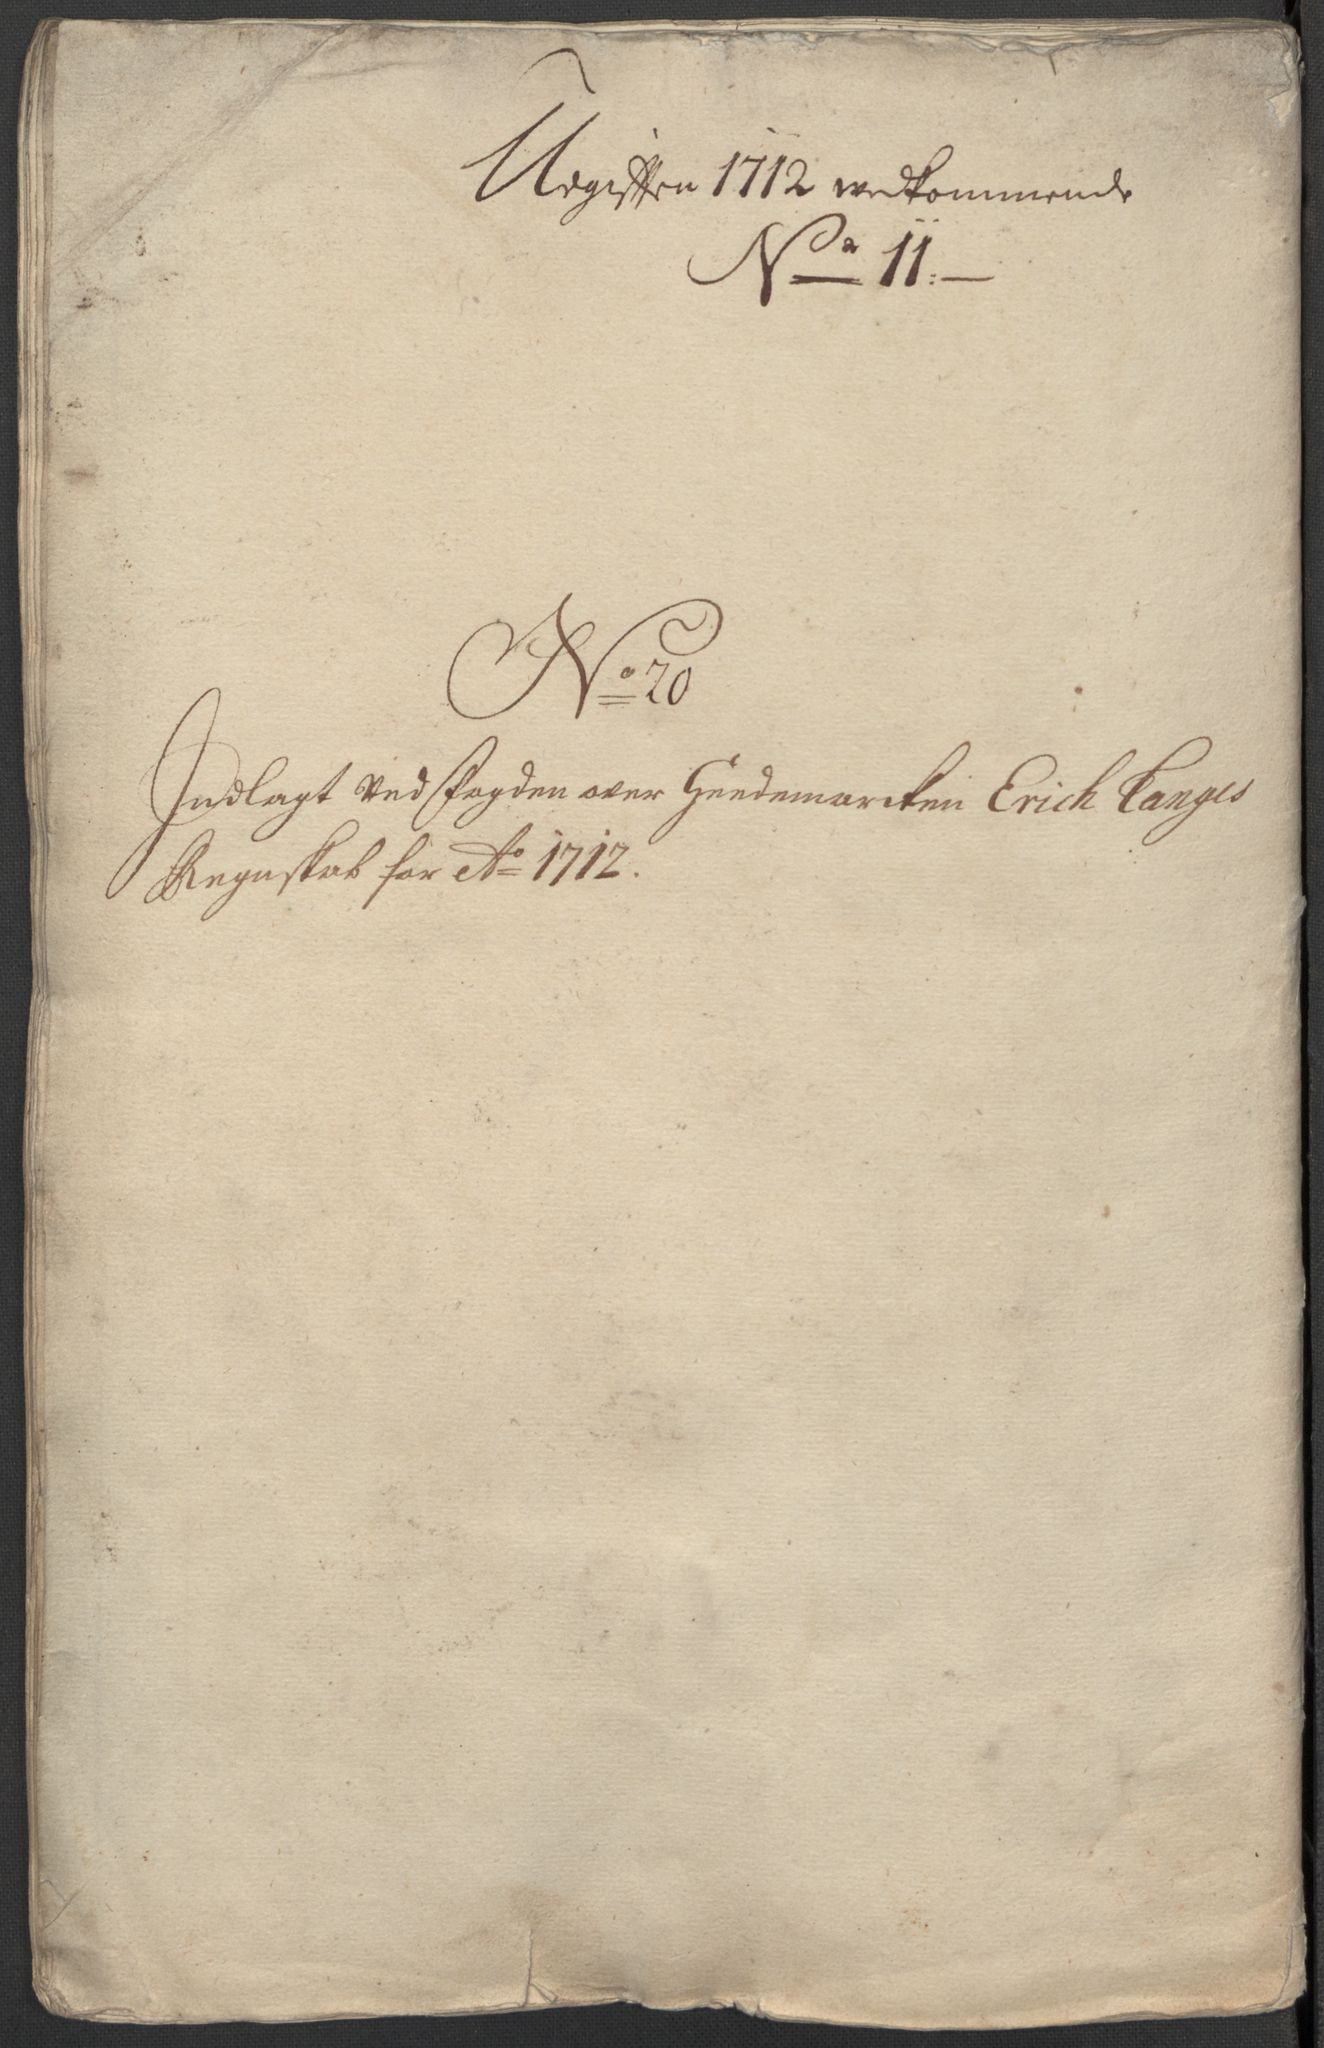 Udgifften 1712 vedkommende
No 11.
No 20
Indlagt ved Fogden over Heedemarcken Erich Langes
Regnskab for Ao 1712.